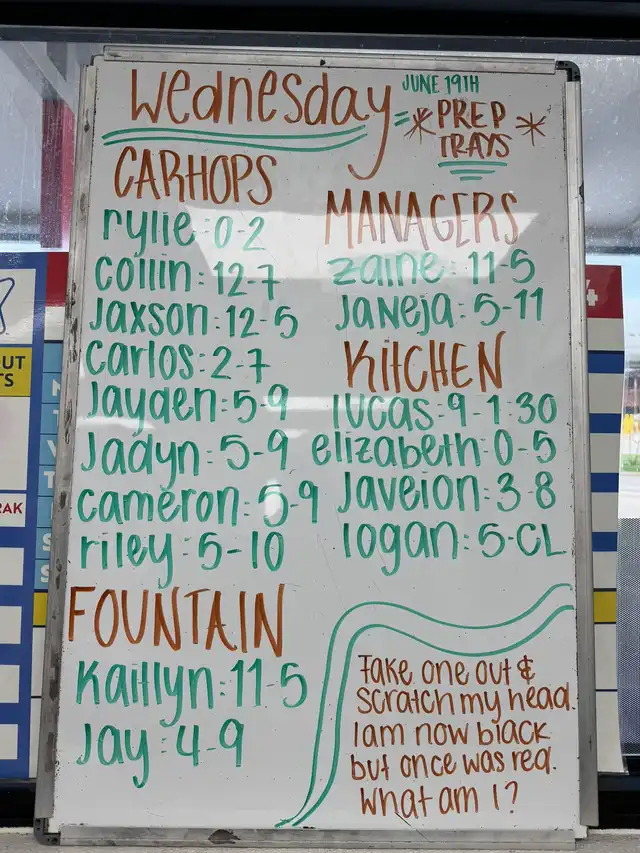 Wednesday
JUNE 19TH
* PREP *
TRAYS
CARHOPS
rylie: 0-2
collin: 12-7
Jaxson: 12-5
Carlos: 2-7
Jayden: 5-9
Jadyn: 5-9
cameron: 5-9
riley: 5-10
FOUNTAIN
Kaitlyn: 11-5
Jay: 4-9
MANAGERS
zaine: 11-5
Janeja: 5-11
KITCHEN
lucas: 9-1:30
elizabeth: 0-5
Javeion: 3-8
logan: 5-CL
Take one out &
scratch my head.
I am now black
but once was red.
What am I?
OUT
TS
EAK
4